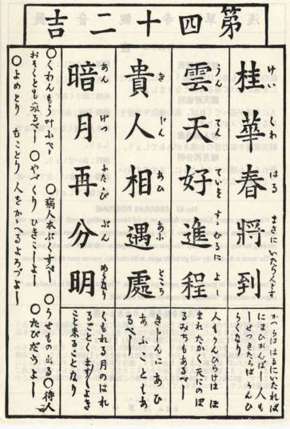 第四十二吉
桂華春將到
けいくわはるまさにいたらんとす
かつらははるにいたれば
らくなり
雲天好進程
うんてん
人もうんひらけはほ
まれたかく天にのぼ
るみちもあるべし
貴人相遇處
きじんあひあふところ
きじんにあひ
あふこともあ
るべし
暗月再分明
あんげつふたゝび
くもれる月のはれ
るごとくますますよき
こと来ることなり
〇くわんもうかなふべし 〇病人本ぶくすべし 〇うせもの出る 〇待人
おそくとも来るべし 〇やづくりひきこしよし 〇たびだちよし
〇よめとりむことり人をかゝへるよろづよし